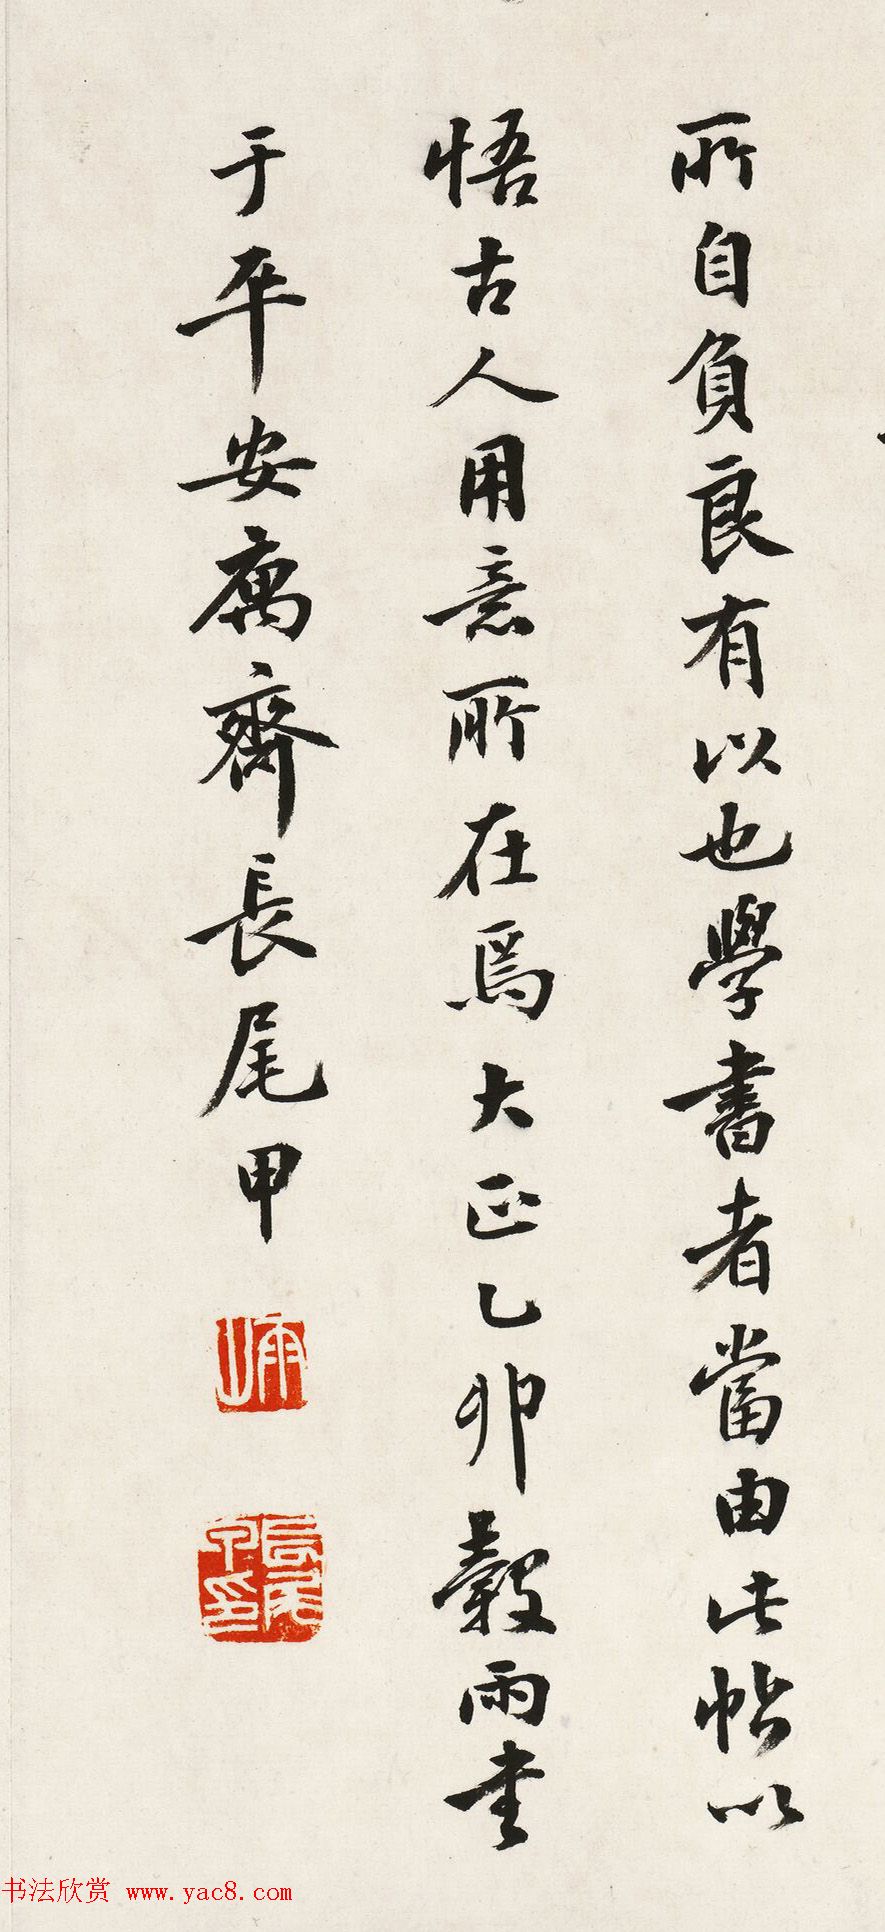 所自負良有以也學書者當由此帖以
悟古人用意所在焉大正乙卯穀雨書
于平安寓齋長尾甲
雨山
長尾甲印
书法欣赏 www.yac8.com